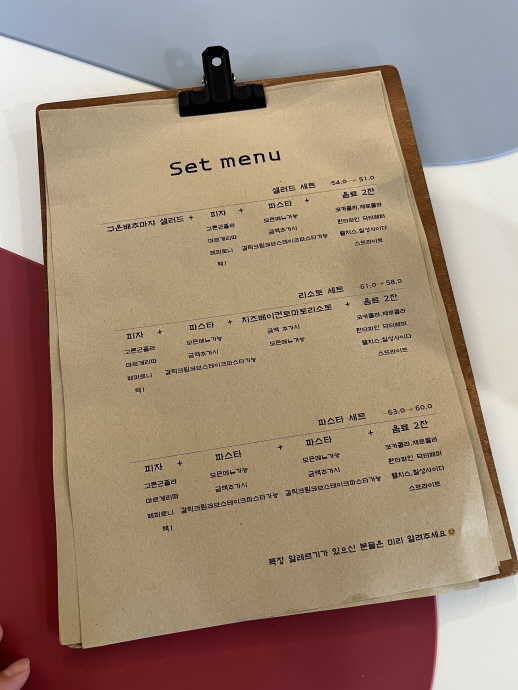 Set menu
샐러드 세트 54.0 → 51.0
구운배추마쟈 샐러드 + 피자 + 파스타 + 음료 2잔
고른곤졸라 모든메뉴가능 코카콜라,제로콜라
마르게리따 금액추가시 환타파인 닥터페퍼
페퍼로니 갈릭크림큐브스테이크파스타가능 웰치스,칠성사이다
택1 스프라이트
리소토 세트 61.0 → 58.0
피자 + 파스타 + 치즈베이컨토마토리소토 + 음료 2잔
고른곤졸라 모든메뉴가능 금액 추가시 코카콜라,제로콜라
마르게리따 금액추가시 모든메뉴가능 환타파인 닥터페퍼
페퍼로니 갈릭크림큐브스테이크파스타가능 웰치스,칠성사이다
택1 스프라이트
파스타 세트 63.0 → 60.0
피자 + 파스타 + 파스타 + 음료 2잔
고른곤졸라 모든메뉴가능 모든메뉴가능 코카콜라,제로콜라
마르게리따 금액추가시 금액추가시 환타파인 닥터페퍼
페퍼로니 갈릭크림큐브스테이크파스타가능 갈릭크림큐브스테이크파스타가능 웰치스,칠성사이다
택1 스프라이트
특정 알레르기가 있으신 분들은 미리 알려주세요😊